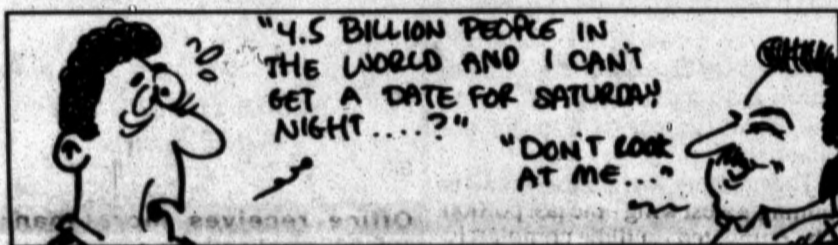 "4.5 BILLION PEOPLE IN
THE WORLD AND I CAN'T
GET A DATE FOR SATURDAY
NIGHT....?"
"DON'T LOOK
AT ME..."
Office receives